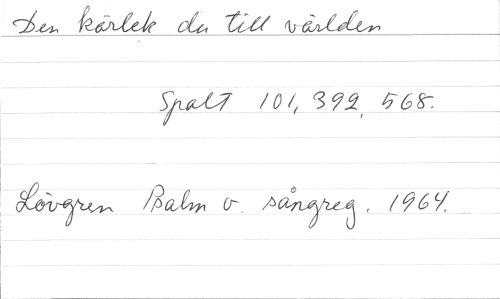 Den kärlek du till världen
Spalt 101, 392, 568.
Lövgren Psalm o. sångreg. 1964.